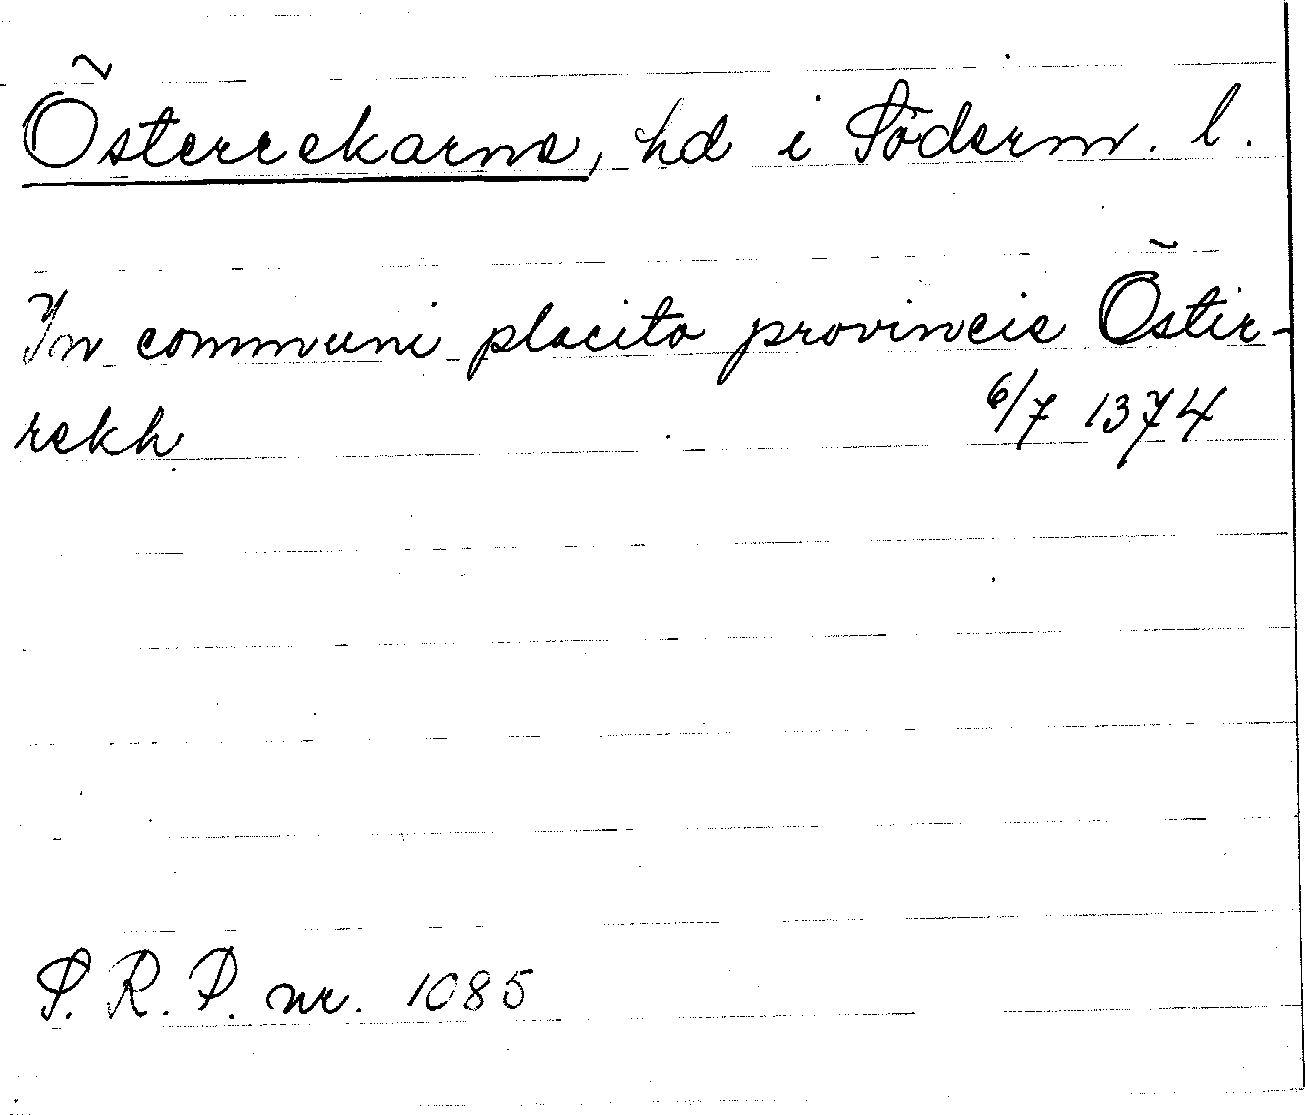 Österrekarne, hd i Söderm. l.
In communi placito provincie Östir-
rekh 6/7 1374
S. R. P. nr. 1085